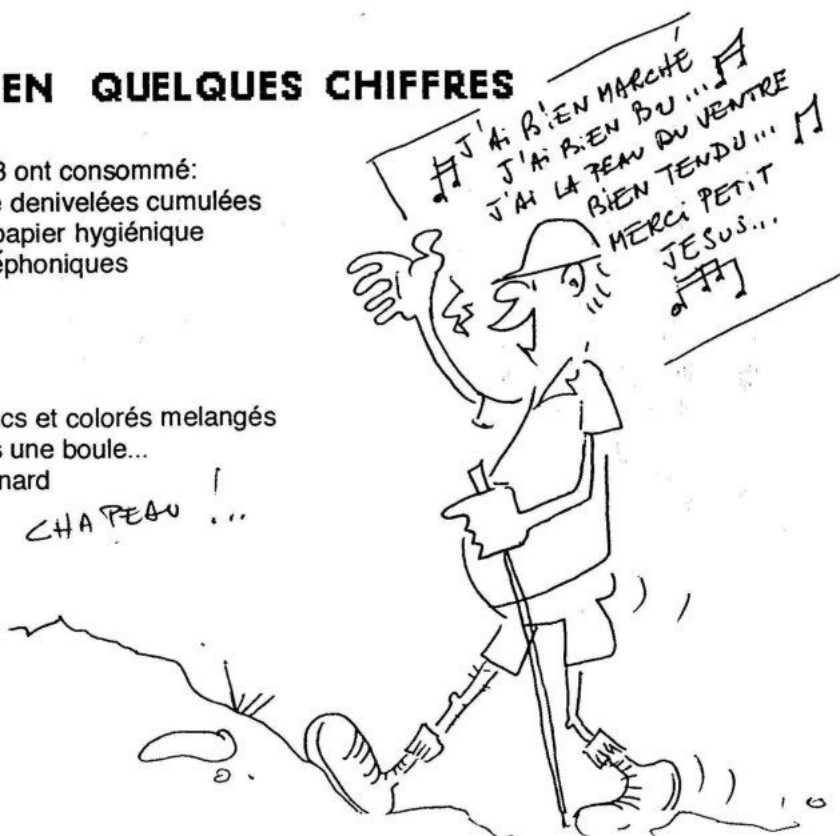 EN QUELQUES CHIFFRES
3 ont consommé:
denivelées cumulées
papier hygiénique
éphoniques
cs et colorés melangés
s une boule...
nard
CHAPEAU !...
J'Ai BiEN MARCHÉ
J'Ai BiEN BU...
J'Ai LA PEAU DU VENTRE
BiEN TENDU...
MERCi PETiT
JESUS...